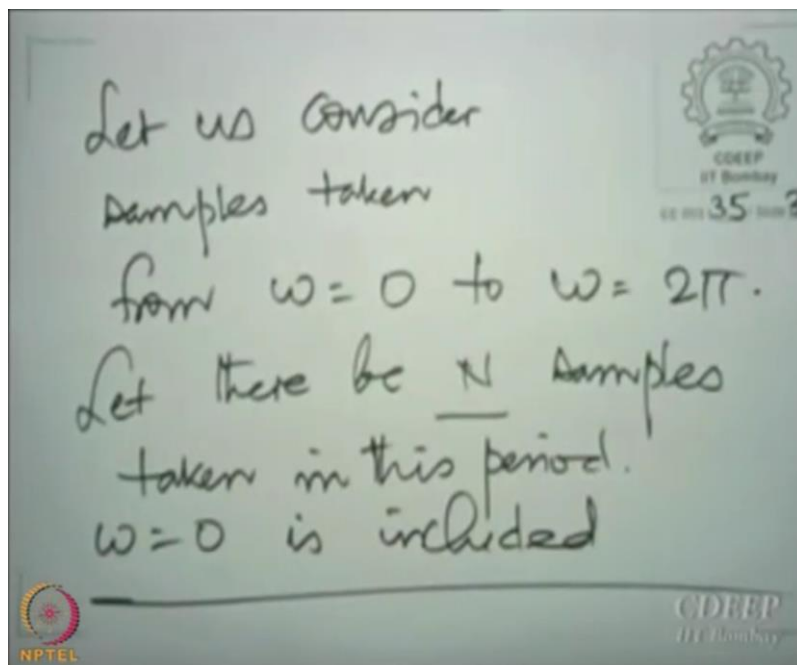 Let us consider
samples taken
from ω = 0 to ω = 2π.
Let there be N samples
taken in this period.
ω = 0 is included
CDEEP
IIT Bombay
35
NPTEL
CDEEP
IIT Bombay